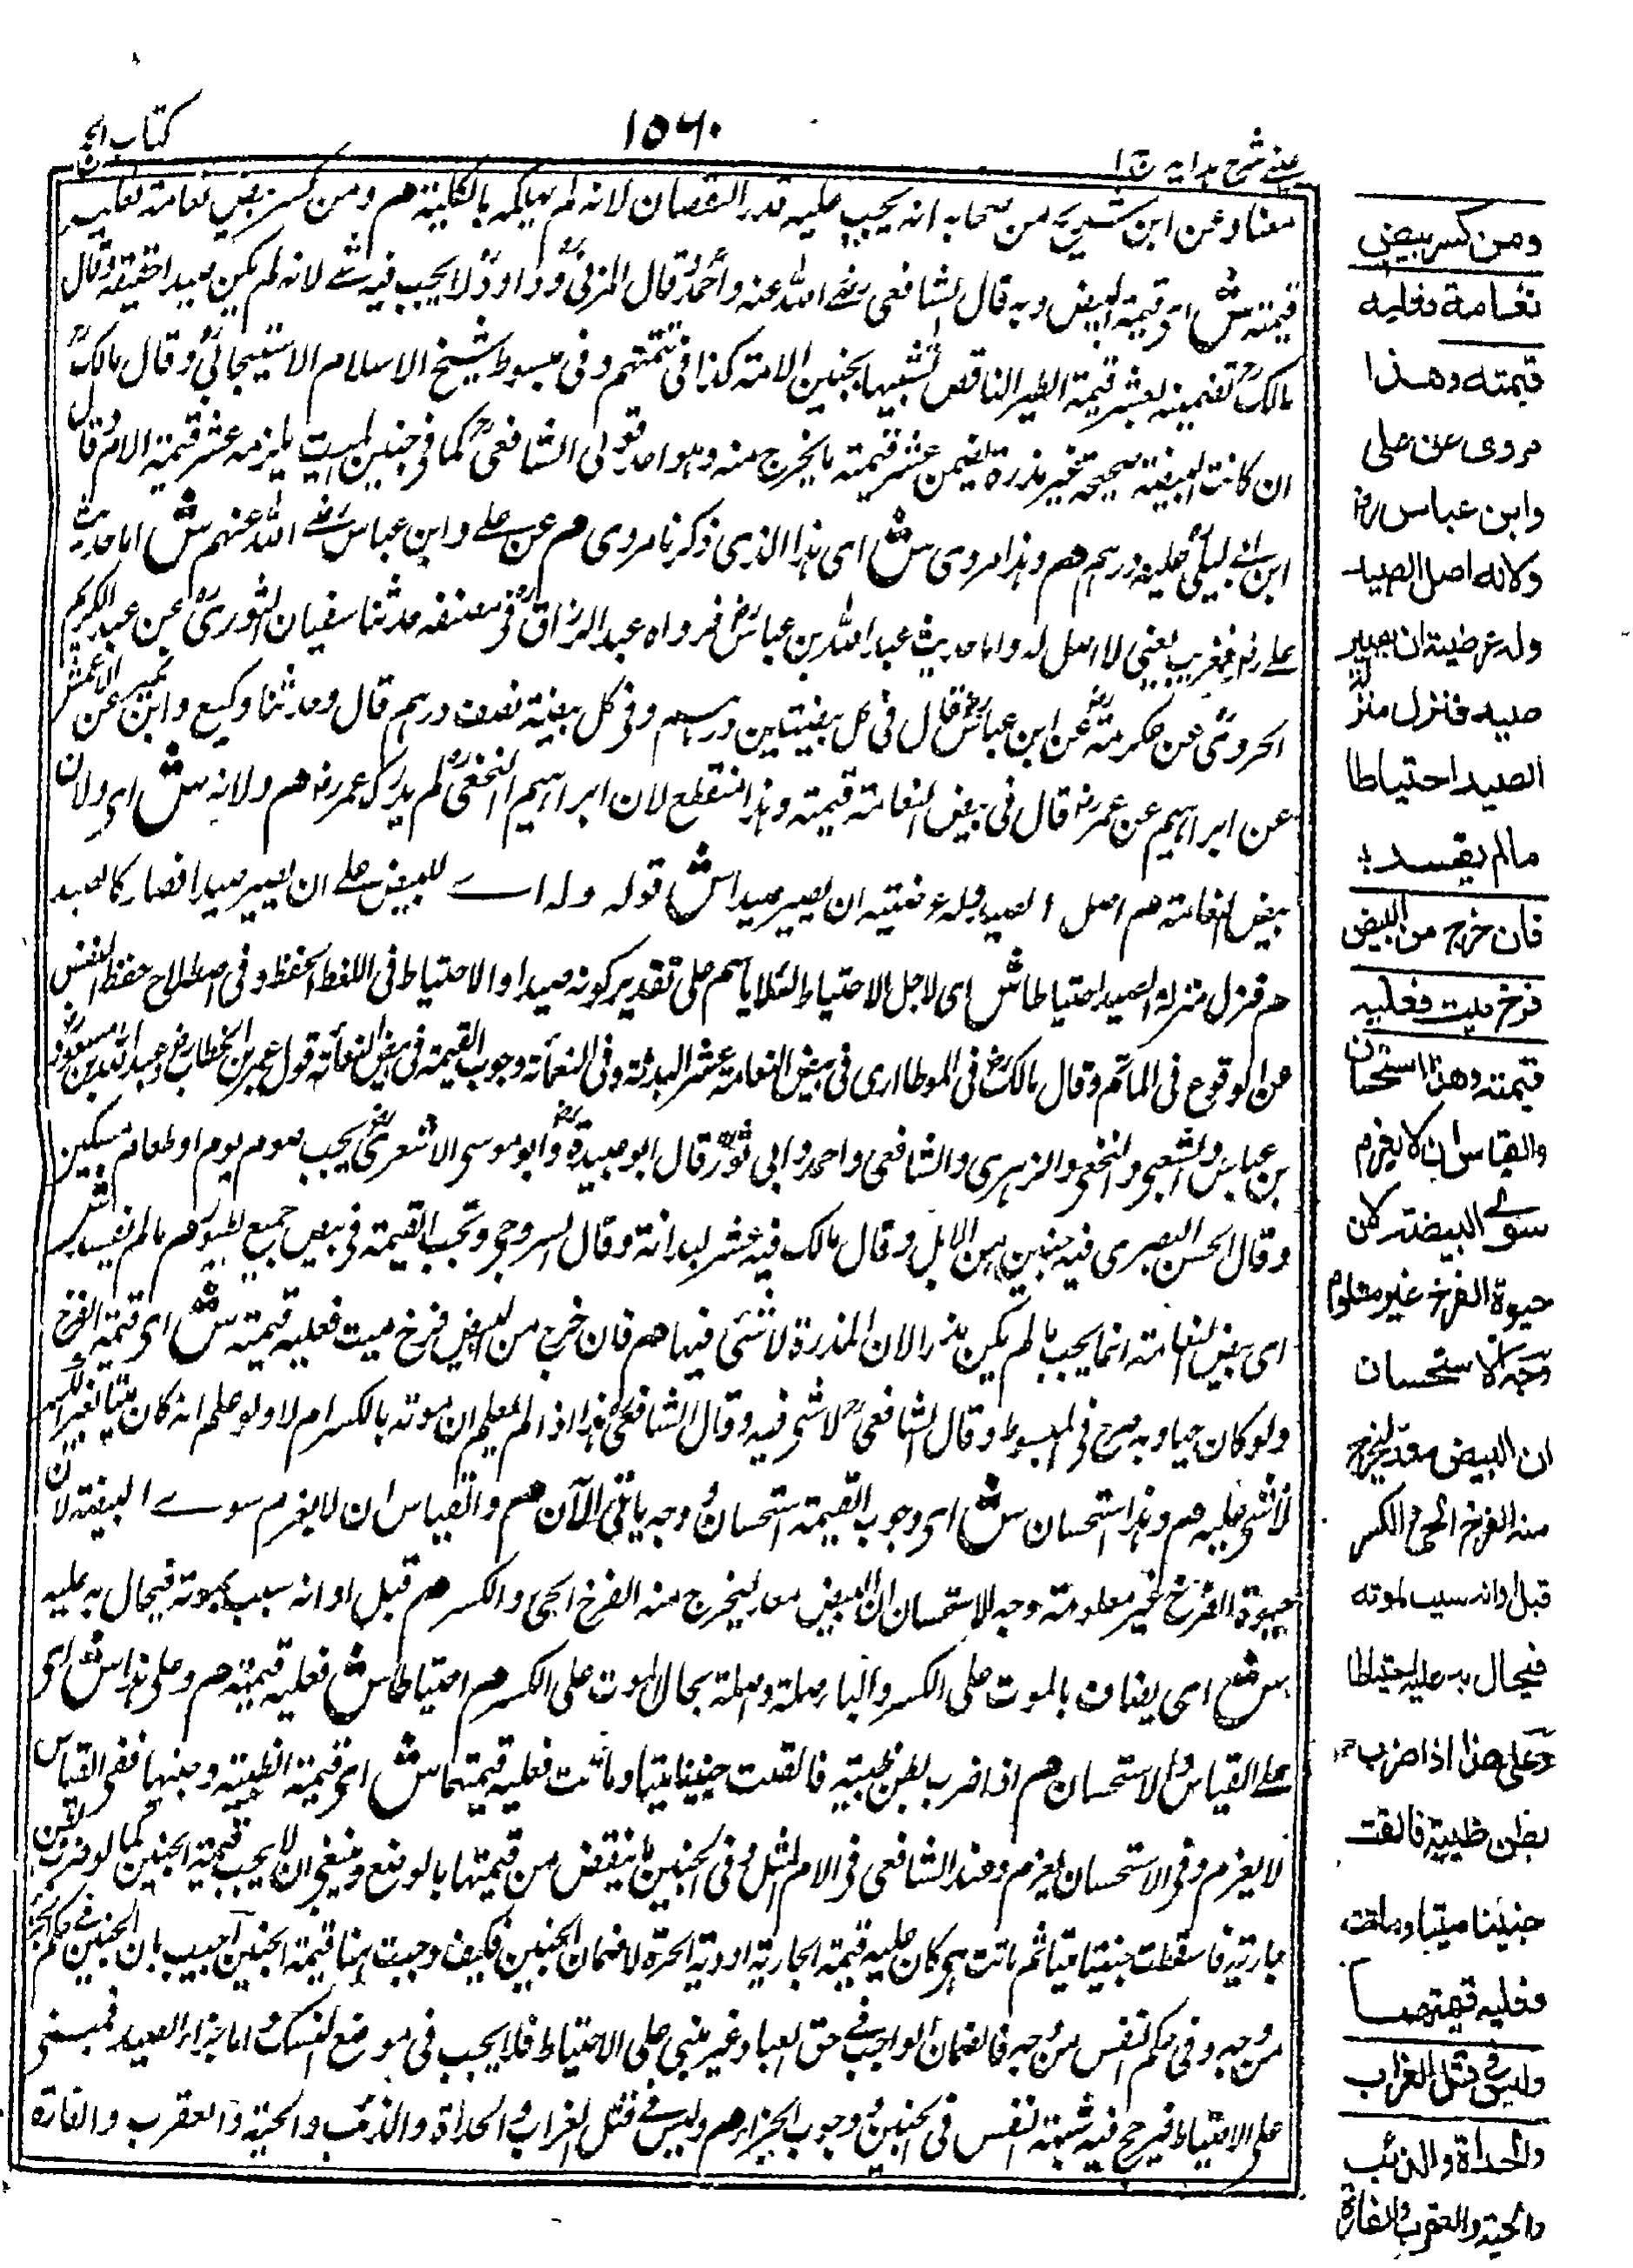 عینی شرح ہدایہ ج ۱
۱۵۶۰
کتاب الحج
معناه وعن ابن من صحابه انه يجب عليه قدر النقصان لانه لم يهلكه بالكلية هم ومن كسر بيض نعامة فعليه
قيمته ش اى قيمة البيض وبه قال الشافعى رضے الله عنه واحمدؒ وقال المزنىؒ وداودؒ لا يجب فيه شے لانه لم يكن صيدا حقيقة وقال
مالكؒ تضمينه بعشر قيمة الطير الناقص تشبيها بجنين الامة كذا فى تتمتهم وفى مبسوط شيخ الاسلام الاسبيجابىؒ وقال مالكؒ
ان كانت البيضة صحيحة غير مذرة يضمن عشر قيمة ما يخرج منه وهو احد قولى الشافعىؒ كما فى جنين الميت يلزمه عشر قيمة الام وقال
ابن ابے ليلىؒ عليه درهم هم وهذا مروى ش اى هذا الذى ذكرنا مروى هم عن على وابن عباس رضے الله عنهم ش اما حديث
علے رضه فغريب يعنى لا اصل له واما حديث عبد الله بن عباسؓ فرواه عبد الرزاقؒ فى مصنفه حدثنا سفيان الثورىؒ عن عبد الكريم
الجزرىؒ عن عكرمةؓ عن ابن عباسؓ قال فى كل بيضتين درهم وفى كل بيضة نصف درهم قال وحدثنا وكيع وابن نمير عن الاعمش
عن ابراهيم عن عمر رضه قال فى بيض النعامة قيمته وهذا منقطع لان ابراهيم النخعىؒ لم يدرك عمر رضه هم ولانه ش اى ولان
بيض النعامة هم اصل الصيد وله عرضية ان يصير صيدا ش قوله وله اے للبيض علے ان يصير صيدا فصار كالصيد
هم فنزل منزلة الصيد احتياطا ش اى لاجل الاحتياط لئلا يأثم على تقدير كونه صيدا والاحتياط فى اللغة الحفظ وفى اصطلاح حفظ النفس
عن الوقوع فى المأثم وقال مالكؒ فى الموطا ارى فى بيض النعامة عشر البدنة وفى النعامة وجوب القيمة فى بيض النعامة قول عمر بن الخطاب رض وعبد الله بن مسعودؓ و
بن عباس والشعبى والنخعى والزهرى والشافعى واحمد وابى ثورؒ قال ابو عبيدةؓ وابو موسى الاشعرىؓ يجب صوم يوم او طعام مسكين
وقال الحسن البصرى فيه جنين من الابل وقال مالك فيه عشر البدنة وقال السروجى وتجب القيمة فى بيض جميع الطيور هم ما لم يفسد ش
اى بيض النعامة انما يجب ما لم يكن مذرا لان المذرة لا شئى فيها هم فان خرج من البيض فرخ ميت فعليه قيمته ش اى قيمة الفرخ
ولو كان حيا وبه صرح فى المبسوط وقال الشافعىؒ لا شى فيه وقال الشافعىؒ هذا اذا لم يعلم ان موته بالكسر ام لا ولو علم انه كان ميتا بغير الكسر
لا شى عليه هم وهذا استحسان ش اى وجوب القيمة استحسان وجه يأتى الآن هم والقياس ان لا يغرم سوے البيضة لان
حيوة الفرخ غير معلومة وجه الاستحسان ان البيض معد ليخرج منه الفرخ الحى والكسر هم قبل اوانه سبب لموته فيحال به عليه
ش اى يضاف بالموت على الكسر والباء صلة وصلة يحال الموت على الكسر هم احتياطا ش فعليه قيمته هم وعلى هذا ش اى
علے القياس والاستحسان هم اذا ضرب بطن ظبية فالقت جنينا ميتا وماتت فعليه قيمتهما ش اى قيمة الظبية وجنينها ففى القياس
لا يغرم وفى الاستحسان يغرم وعند الشافعى فى الام المثل وفى الجنين ما ينقص من قيمتها بالوضع وينبغى ان لا يجب قيمة الجنين كما لو ضرب بطن
جارية فاسقطت جنينا ميتا ثم ماتت هى كان عليه قيمة الجارية او دية الحرة لا ضمان الجنين فكيف وجبت هنا قيمة الجنين اجيب بان الجنين فى حكم الجزء
من وجه وفى حكم النفس من وجه فالضمان الواجب فے حق العباد غير مبنى على الاحتياط فلا يجب فى موضع الشك واما جزاء الصيد فمبنى
على الاحتياط فيرجح فيه شبهة النفس فى الجنين وجوب الجزاء هم وليس فے قتل الغراب والحداة والذئب والحية والعقرب والفارة
ومن كسر بيض
نعامة فعليه
قيمته وهذا
مروى عن على
وابن عباس رض
ولانه اصل الصيد
وله عرضية ان يصير
صيدا فنزل منزلة
الصيد احتياطا
مالم يفسد
فان خرج من البيض
فرخ ميت فعليه
قيمته وهذا استحسان
والقياس ان لا يغرم
سوى البيضة لان
حيوة الفرخ غير معلوم
وجه الاستحسان
ان البيض معد ليخرج
منه الفرخ الحى والكسر
قبل اوانه سبب لموته
فيحال به عليه احتياطا
وعلى هذا اذا ضرب
بطن ظبية فالقت
جنينا ميتا وماتت
فعليه قيمتهما
وليس فى قتل الغراب
والحداة والذئب
والحية والعقرب والفارة